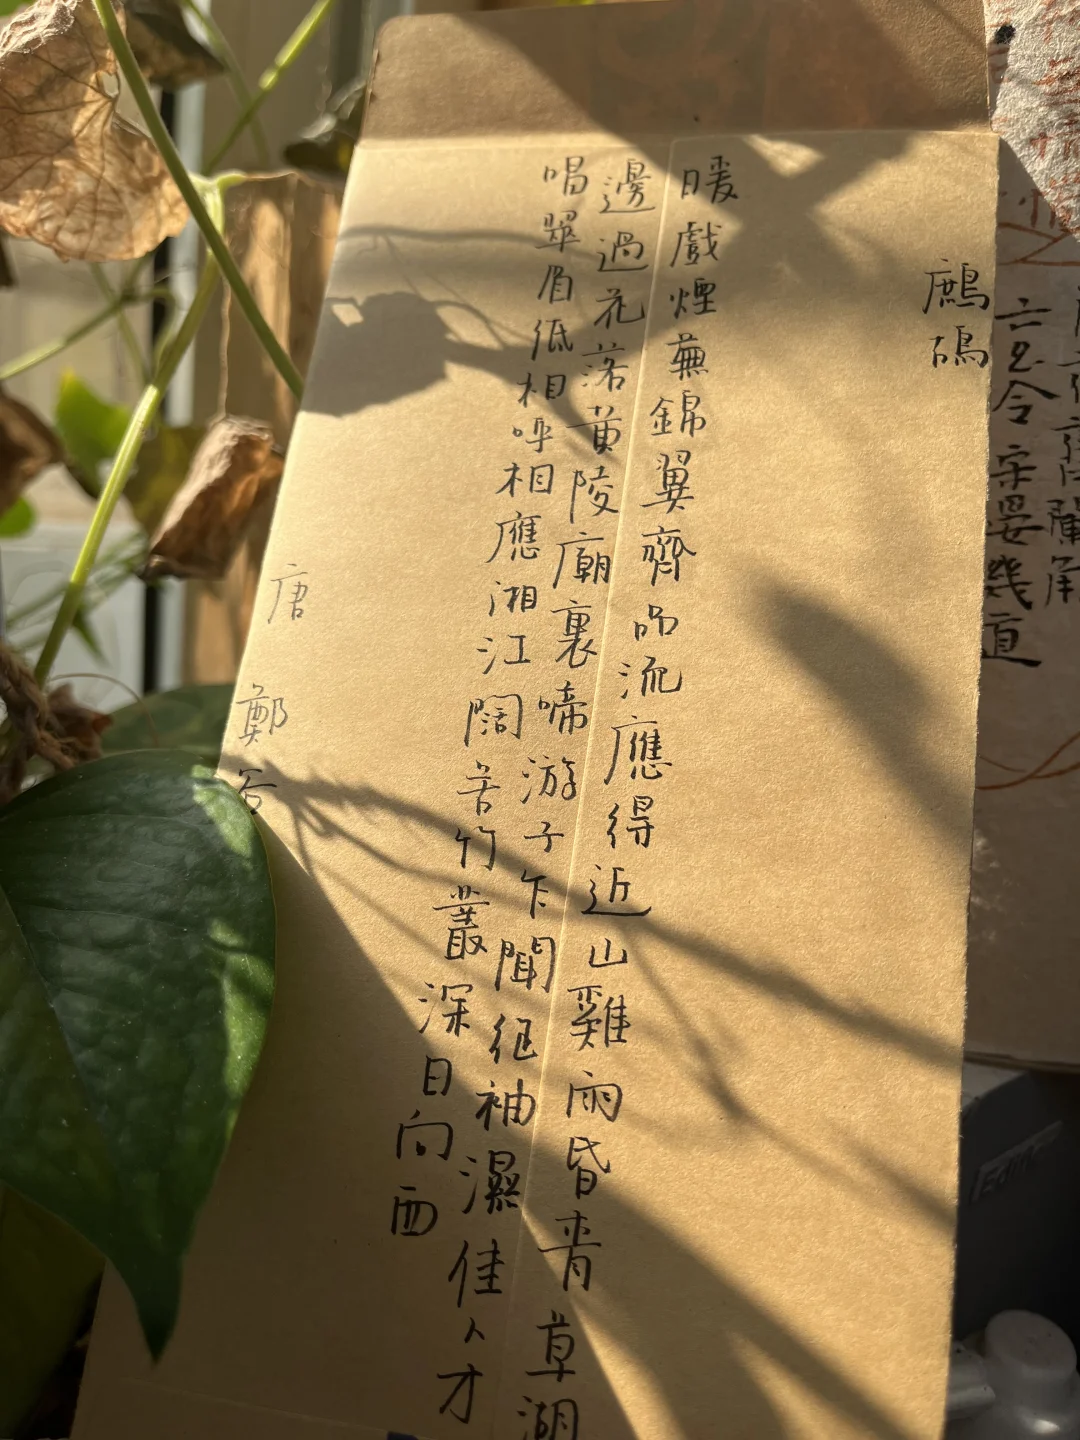 六幺令 宋晏幾道
鷓鴣
暖戲煙蕪錦翼齊品流應得近山雞雨昏青草湖
邊過花落黃陵廟裏啼游子乍聞征袖濕佳人才
唱翠眉低相呼相應湘江闊苦竹叢深日向西
唐 鄭谷